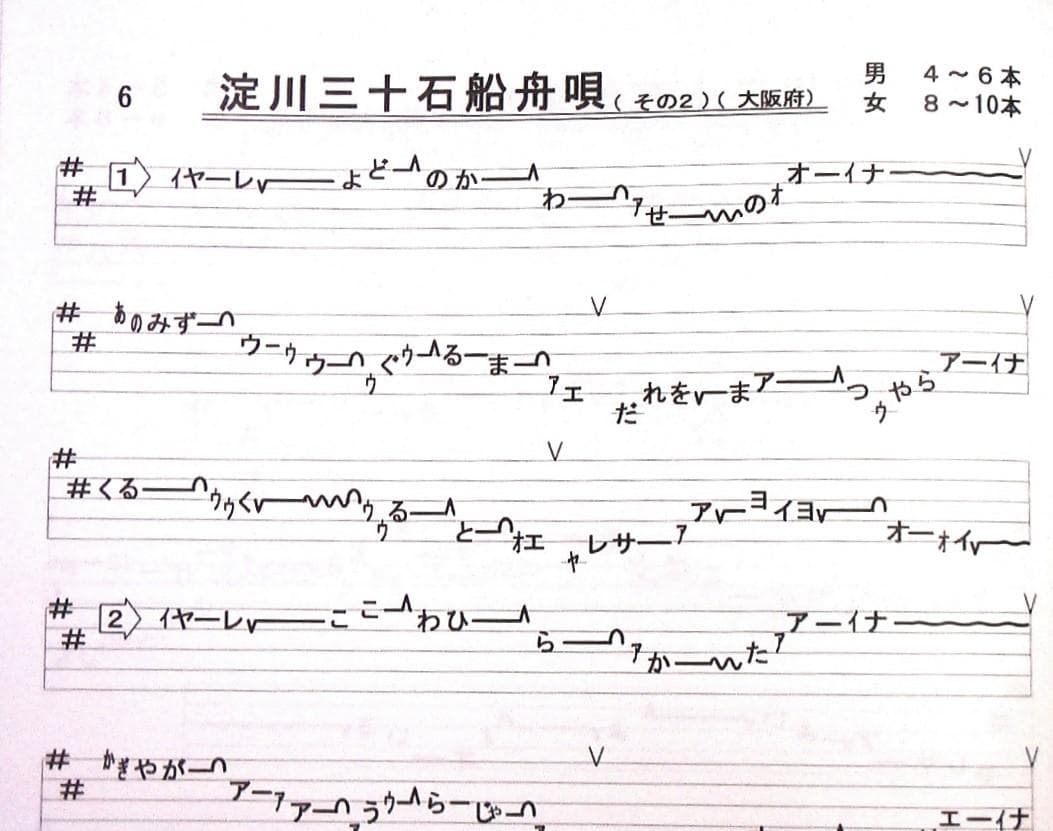 6 淀川三十石船舟唄(その2)(大阪府)
男 4～6本
女 8～10本
1 イヤーレ よどーのかーわーァせーのォオーイナ
あのみずーウーゥウーゥぐゥーるーまーァエ だれをーまアーつゥやらアーイナ
くるーゥゥくーゥゥるーとーォエ ャレサーァアーヨイヨーオーォイ
2 イヤーレ ここーわひーらーァかーたァアーイナ
かぎやがーアーァアーうゥーらーじゃー エーイナ